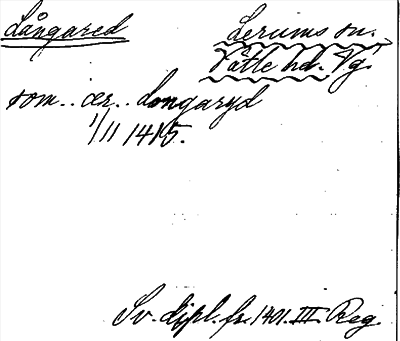 Långared Lerums sn.
Vättle hd. Vg.
som.. ær.. longaryd
1/11 1415.
Sv. dipl. fr. 1401. III. Reg.